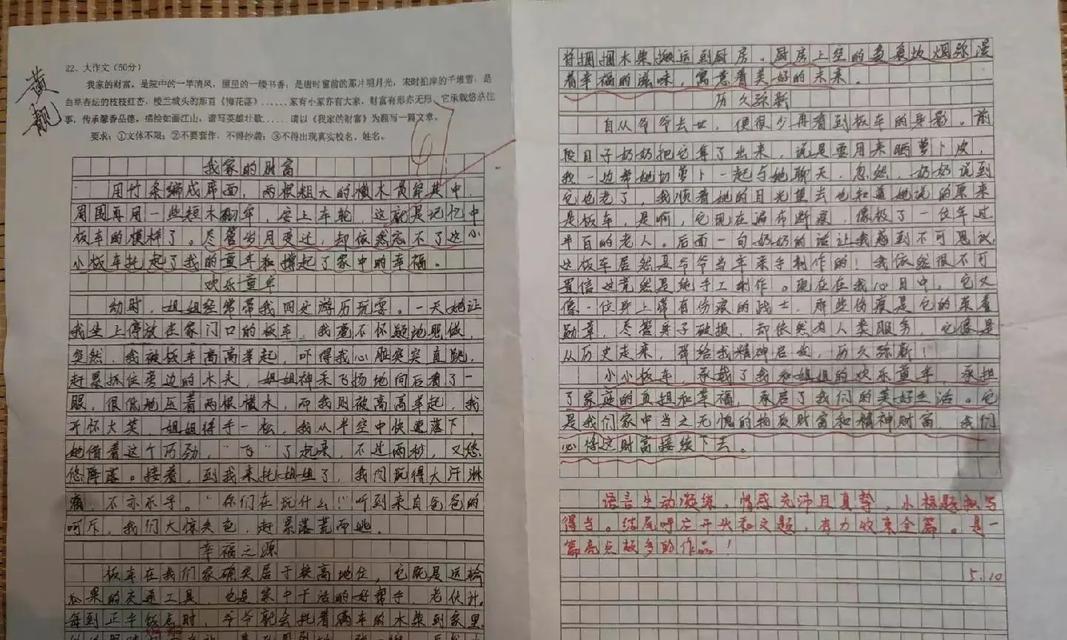 黄靓
22. 大作文(50分)
我家的财富，是院中的一举清风，屋里的一缕书香，是唐时窗前的那片明月光，宋时拍岸的千堆雪；是
要求：①文体不限；②不要套作，不得抄袭；③不得出现真实校名、姓名。
我家的财富
用竹条编成席面，两根粗大的横木贯其中，
周围再用一些短木，安上车轮，这就是记忆中
板车的模样了。尽管岁月变迁，却依然忘不了这小
小板车托起了我的童年和撑起了家中的幸福。
欢乐童年
幼时，姐姐经常带我四处游历玩耍。一天她让
我坐上停放在家门口的板车，我毫不怀疑地照做，
突然，我被板车高高举起，吓得我心脏突突直跳，
赶紧抓住旁边的木头，姐姐神采飞扬地向后看了一
眼，很低地压着两根横木，而我则被高高举起，我
开怀大笑，姐姐待手一松，我从半空中快速落下，
她借着这个巧劲，“飞”了起来，不过两秒，又悠
悠降落。接着，到我来托姐姐了，我们玩得大汗淋
漓，不亦乐乎。“你们在玩什么！”听到来自爸爸的
呵斥，我们大惊失色，赶紧落荒而逃。
幸福之源
板车在我们家确实居于较高地位，它既是运输
瓜果的交通工具，也是集中干活的好帮手，老伙计。
每到正午饭点时，爷爷就会托着满车的木柴到家里
将捆捆木柴搬运到厨房。厨房上空的袅袅炊烟弥漫
着幸福的滋味，寓意着美好的未来。
历久弥新
自从爷爷去世，便很少再看到板车的身影。前
段日子奶奶把它弄了出来，说是要用来晒萝卜皮，
我一边帮她切萝卜一起与她聊天，忽然，奶奶说到
它也老了，我顺着她的目光望去也知道她说的原来
是板车，是啊，它现在满布断痕，像极了一位年过
半百的老人。后面一句奶奶的话让我感到不可思议，
这板车居然是爷爷当年亲手制作的！我依然很不可
置信这竟然是纯手工制作。现在在我心目中，它又
像一位身上带有伤痕的战士，那些伤痕是它的荣誉
勋章，尽管身子破损，却依然为人类服务，它像是
从历史走来，带给我精神启发，历久弥新！
小小板车，承载了我和姐姐的欢乐童年，承担
了家庭的责担和幸福，承启了我们的美好生活。它
是我们家中当之无愧的物质财富和精神财富，我们
必将这财富接续下去。
语言生动凝练，情感充沛且真挚，小标题拟写
得当。结尾呼应开头和文题，有力收束全篇。是一
篇亮点颇多的作品！
5.10